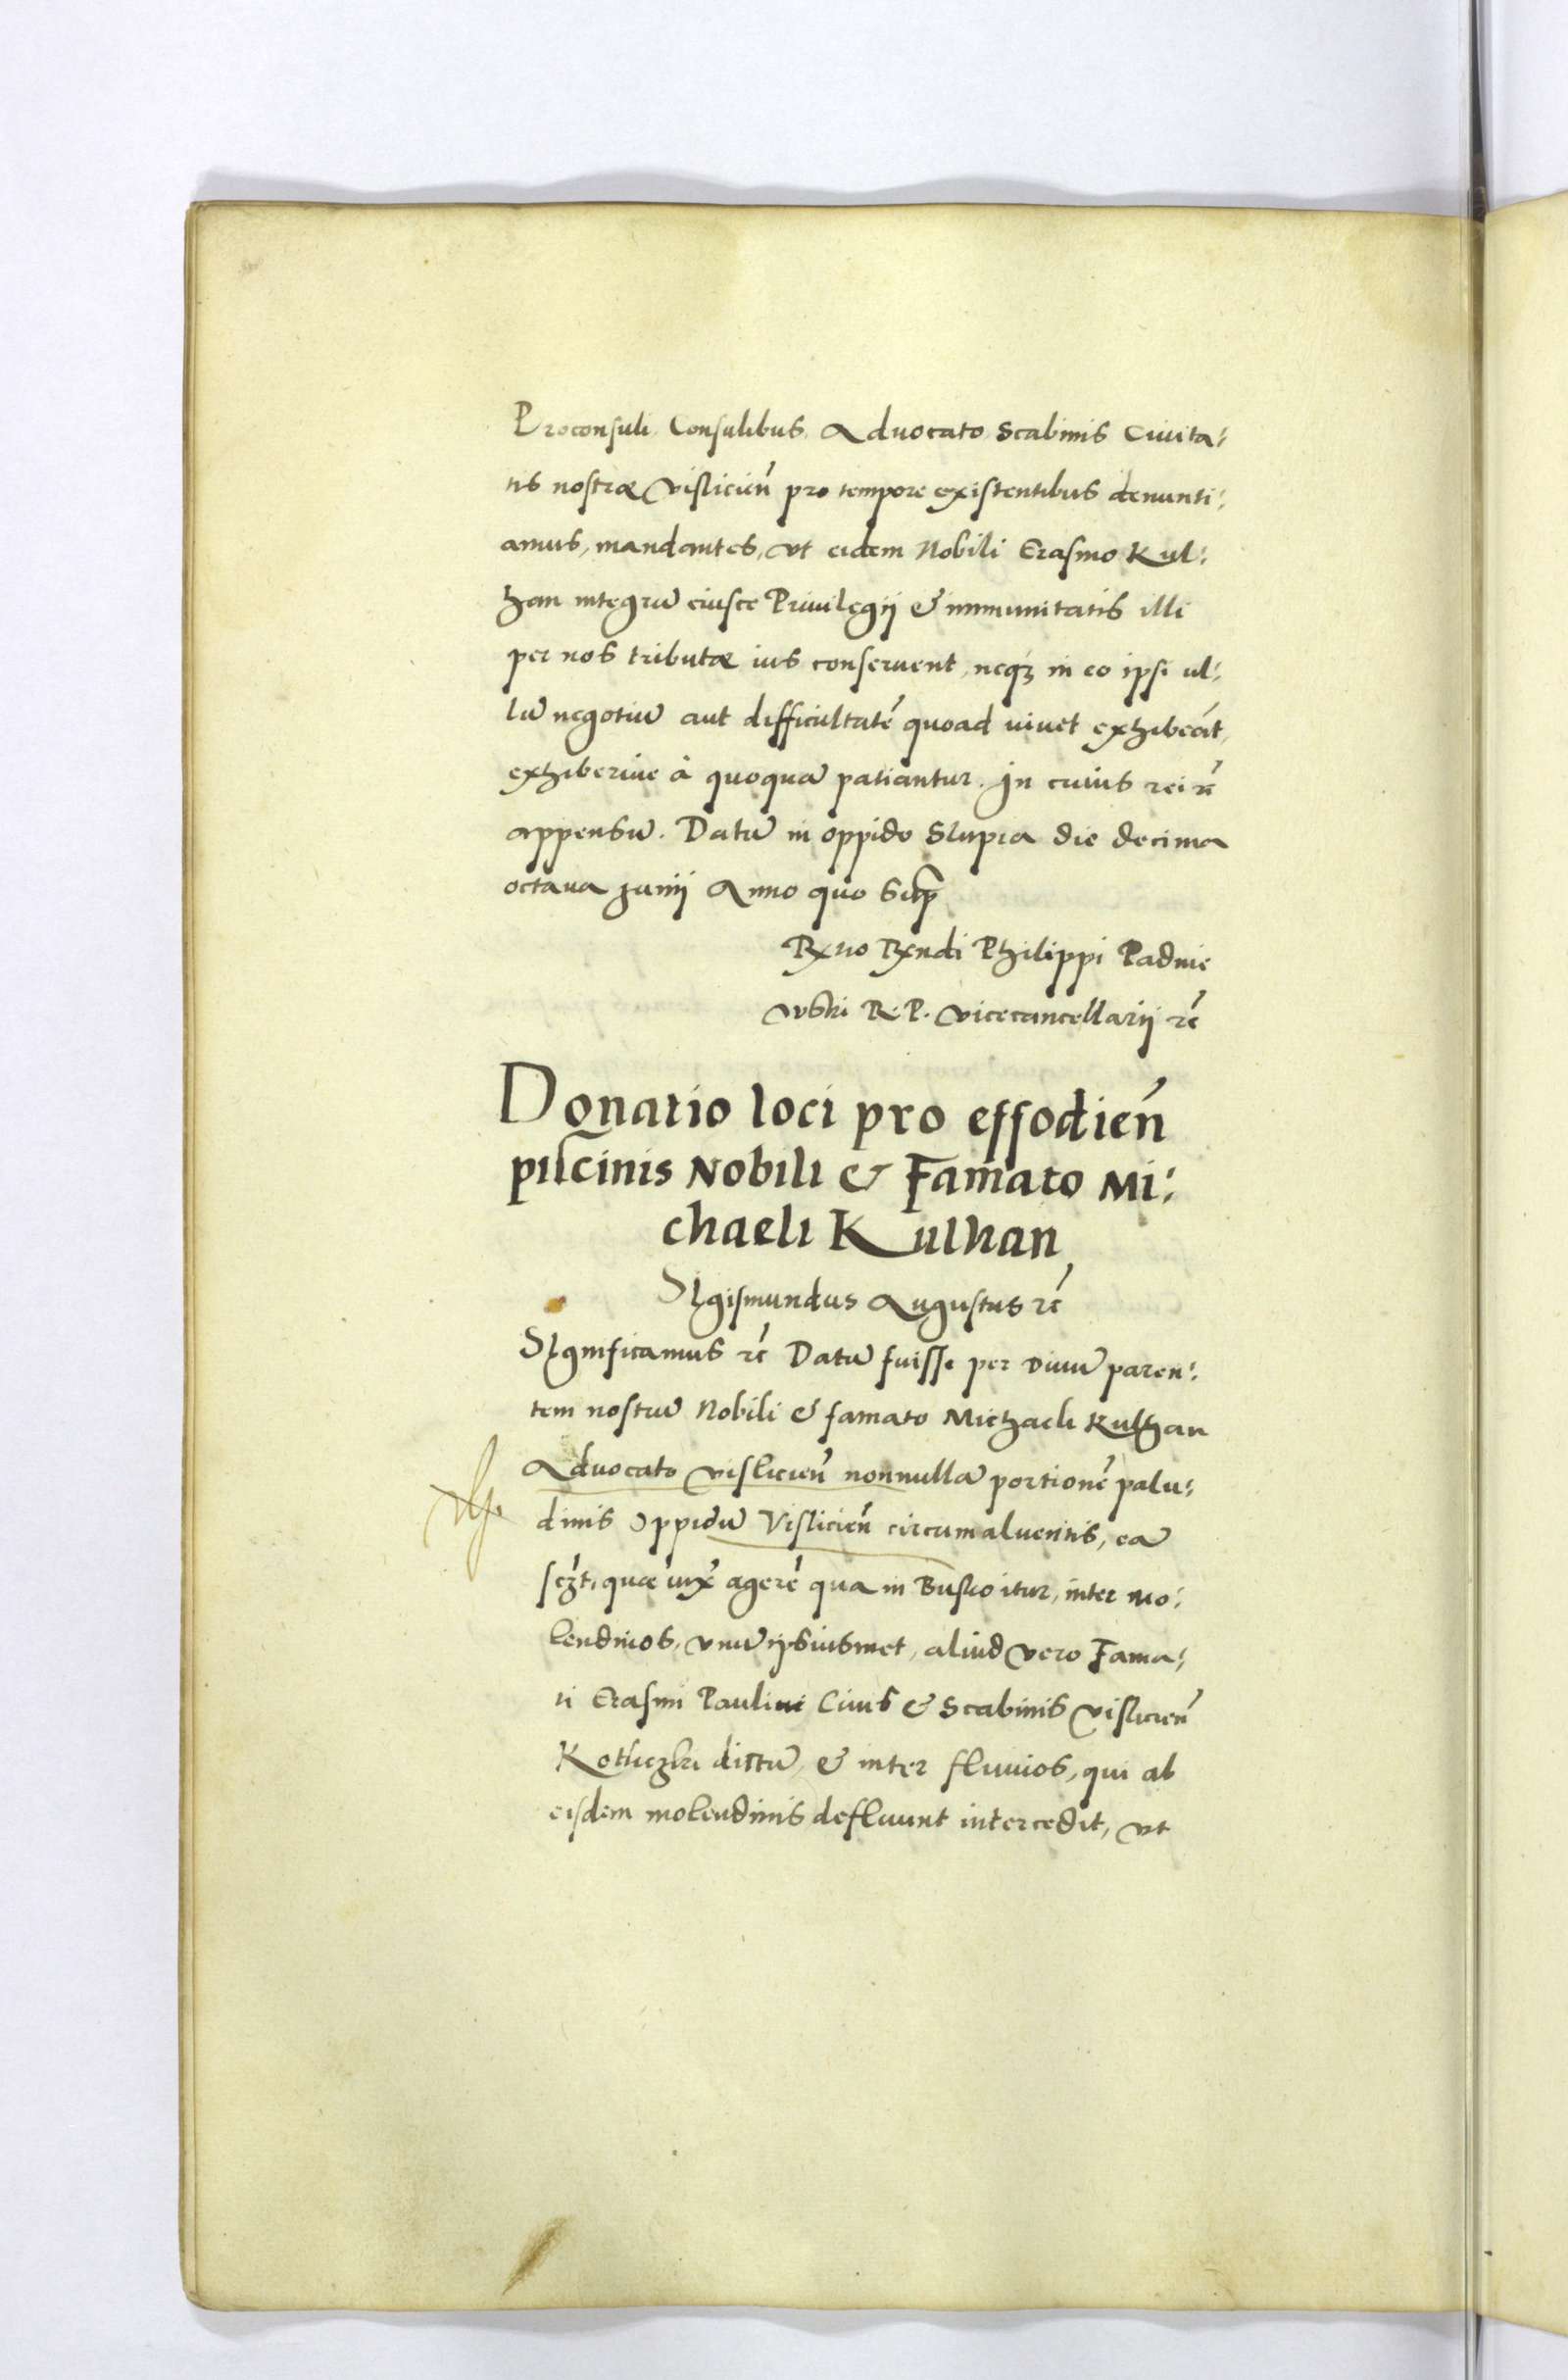 Proconsuli Consulibus Aduocato Scabinis Ciuita:
tis nostræ Visliciēn pro tempore existentibus denunti:
amus, mandantes, vt eidem Nobili Erasmo Kul:
han integrū eiusce Priuilegii & immunitatis illi
per nos tributæ ius conseruent, neqꝫ in eo ipsi ul:
lū negotiū aut difficultatē quoad viuet exhibeāt,
exhiberiue à quoquā patiantur. In cuius rei rc̄
appensū. Datū in oppido Slupia die decima
octava Junii Anno quo supra
Rxno Rxndi Philippi Padnie
wski R. P. vicecancellarii rc̄
Donatio loci pro effodien̄
piscinis Nobili & Famato Mi:
chaeli Kulhan
SIgismundus Augustus rc̄
SIgnificamus rc̄ Datū fuisse per Diuū paren:
tem nostrū Nobili & famato Michaeli Kulhan
Aduocato vislicien̄ nonnullā portionē palu:
dinis Oppidū Vislicien̄ circumaluentis, eā
sczt, quæ iux̄ agerē qua in Busko itur, inter mo:
lendinos, vnū ipsiusmet, aliud vero Fama:
ti Erasmi Paulini Ciuis & Scabinis vislicien̄
Kotliczki dictū, & inter fluuios, qui ab
eisdem molendinis defluunt intercedit, vt